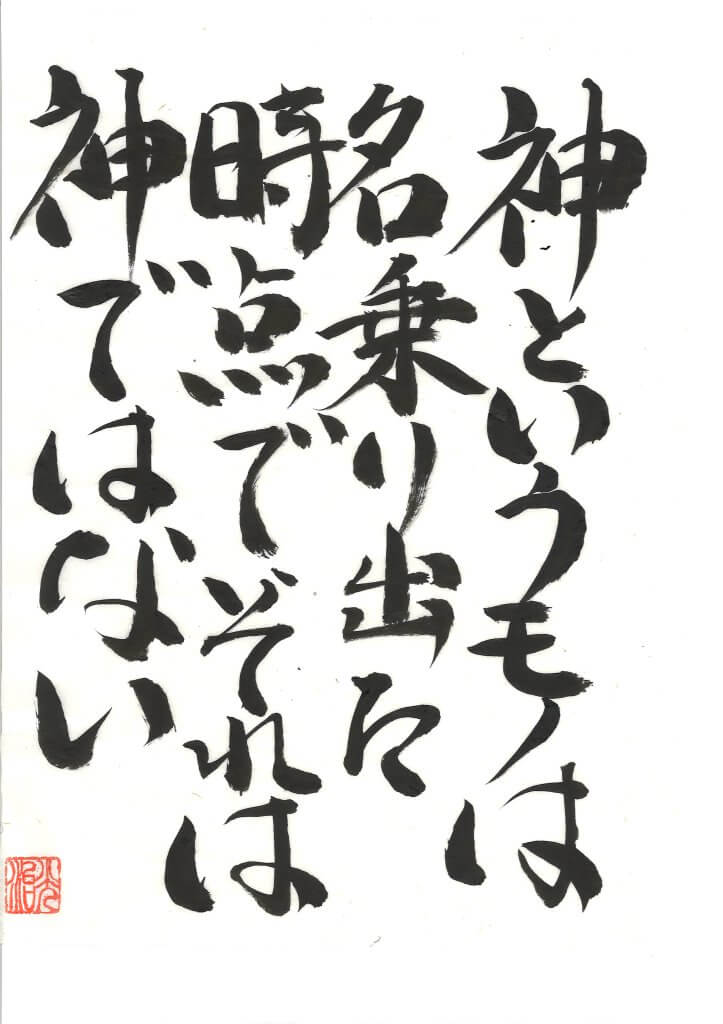 神というモノは
名乗り出た
時点でそれは
神ではない